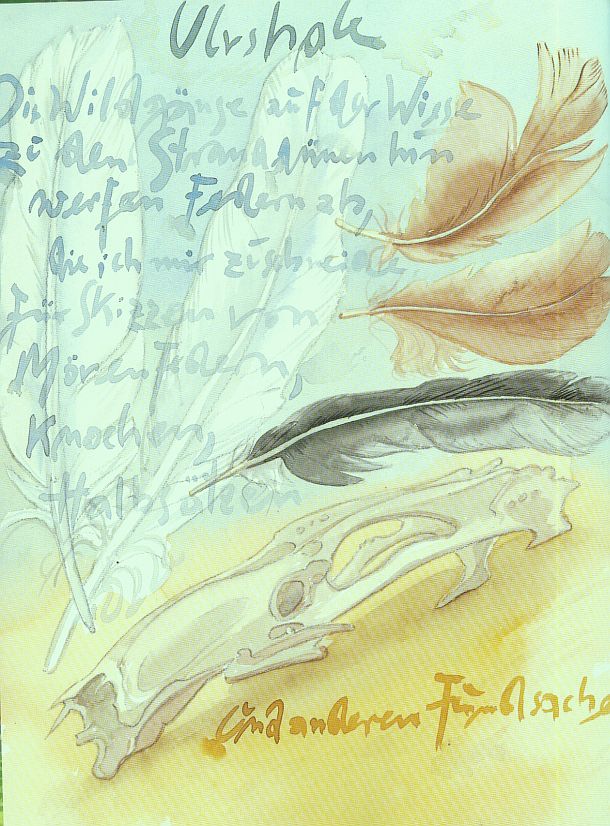 Ulvshale
Die Wildgänse auf der Wiese
zu den Stranddünen hin
werfen Federn ab,
die ich mir zuschneide
für Skizzen von
Möwenfedern,
Knochen,
Halbsätzen
und anderen Fundsache